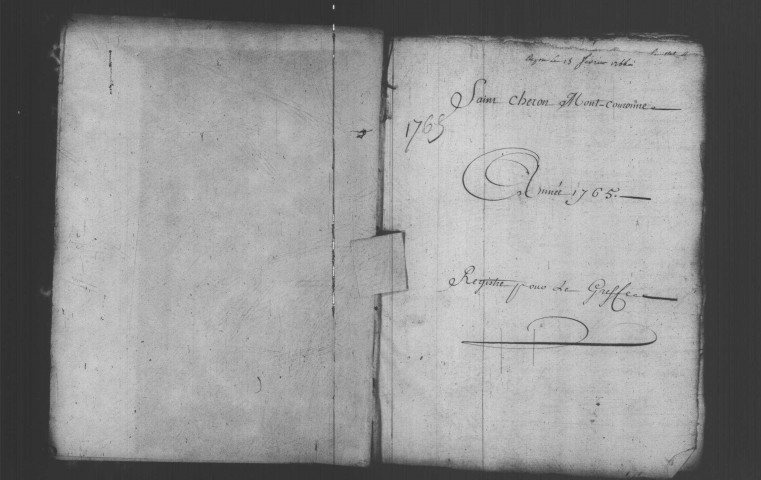 18 fevrier 1766
Saint cheron Mont-couronne
1765
Année 1765.
Registre pour le Greffe